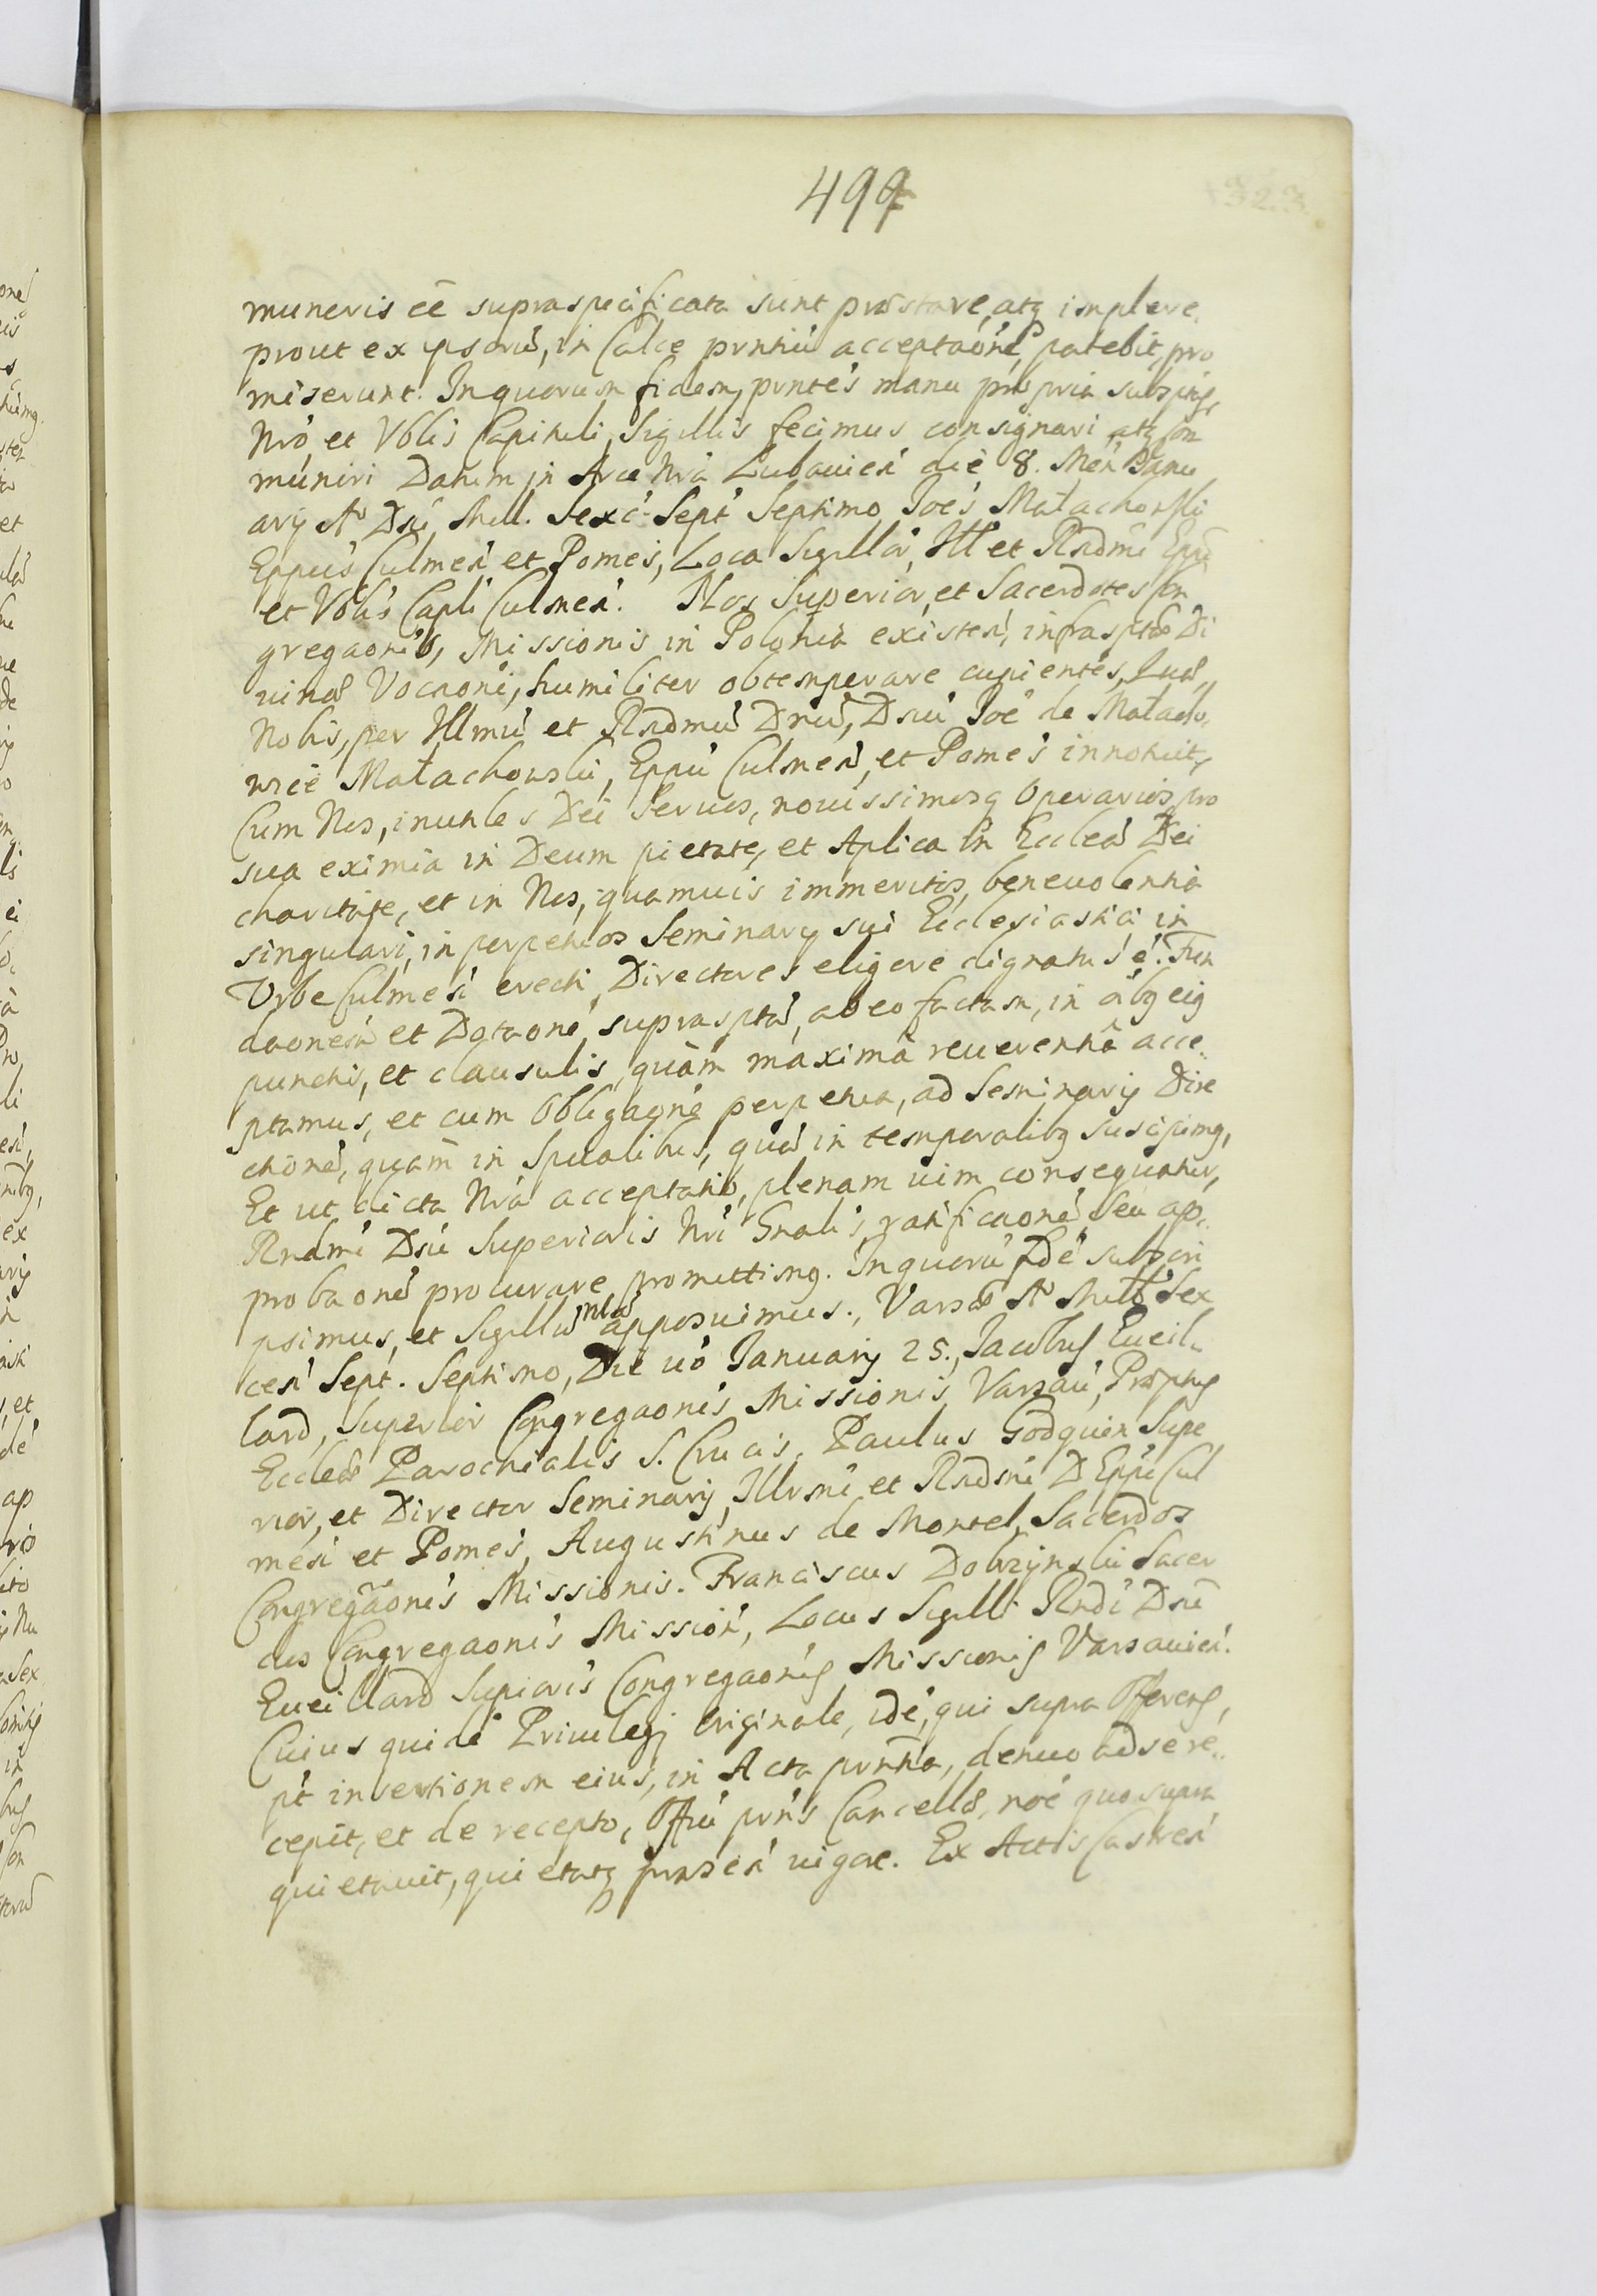 499
muneris eē supraspecificata sunt præstare, atq implere,
prout ex ipsorū, in Calce pntiū acceptaōne, patebit, pro
miserunt. In quorum fidem, pntes manu propria subsptas,
Nrō, et Vblis Capituli, Sigillis fecimus consignari atq com
muniri Datum in Arce Nrā Lubauien die 8. Men Janu
arij Aº Dni Mill. Sexc. Sept Septimo Joēs Małachowski
Eppūs Culmen et Pomes, Loca Sigillor, Ill et Rndmi Eppi
et Vblis Capli Culmen. Nos Superior, et Sacerdotes Con
gregaonis, Missionis in Polonia existen, infrasptæ Di
uinæ Vocaoni, humiliter obtemperare cupientes, Quæ
Nobis, per Illmū et Rndmū Dnū, Dnū Joē de Małacho,
wice Małachowski, Eppū Culmen, et Pomes innotuit,
Cum Nos, inutiles Dei Seruos, nouissimosq Operarios, pro
sua eximia in Deum pietate, et Aplica in Ecclea Dei
charitate, et in Nos, quamuis immeritos, beneuolentia
singulari, in perpetuos Seminarij sui Ecclesiastici in
Vrbe Culmesi erecti, Directores eligere dignatus é. Fun
daonem et Dotaone suprasptā, ab eo factam, in oibq eiq
punctis, et clausulis, quàm maximâ reuerentiâ acce,,
ptamus, et cum Obligaone perpetua, ad Seminarij Dire
ctionē, quàm in Spualibus, quā in temporalibq suscipimq,
Et ut dicta Nrā acceptatio, plenam uim consequatur,
Rndmi Dni Superioris Nri Gnalis, ratificaonē, seu ap,,
probaonē procurare promittimq. In quorū fidē subscri
psimus, et Sigillū nrū apposuimus., Varsæ Aº Mill Sex
cen Sept. Septimo, Die uº January 25., Jacobus Eueil,,
lard, Superior Congregaonis Missionis Varsau, Præptus
Eccleæ Parochialis S. Crucis, Paulus Godquin Supe
rior, et Director Seminarij, Illrmi et Rndmi D Eppi Cul
mesi et Pomes, Augustinus de Montel, Sacerdos
Congregaonis Missionis. Franciscus Dobrzynski Sacer
dos Congregaonis Mission, Locus Sigilli Rndi Dni
Eueillard Supioris Congregaonis Missionis Varsauien.
Cuius quidē Priuilegj Originale, idē, qui supra Offerens,
pt insertionem eius, in Acta pntia, denuo ad se re,,
cepit, et de recepto, Offiū pnis Cancellæ, noē quo supra
quietauit, quietatq præsen uigore. Ex Actis Castren